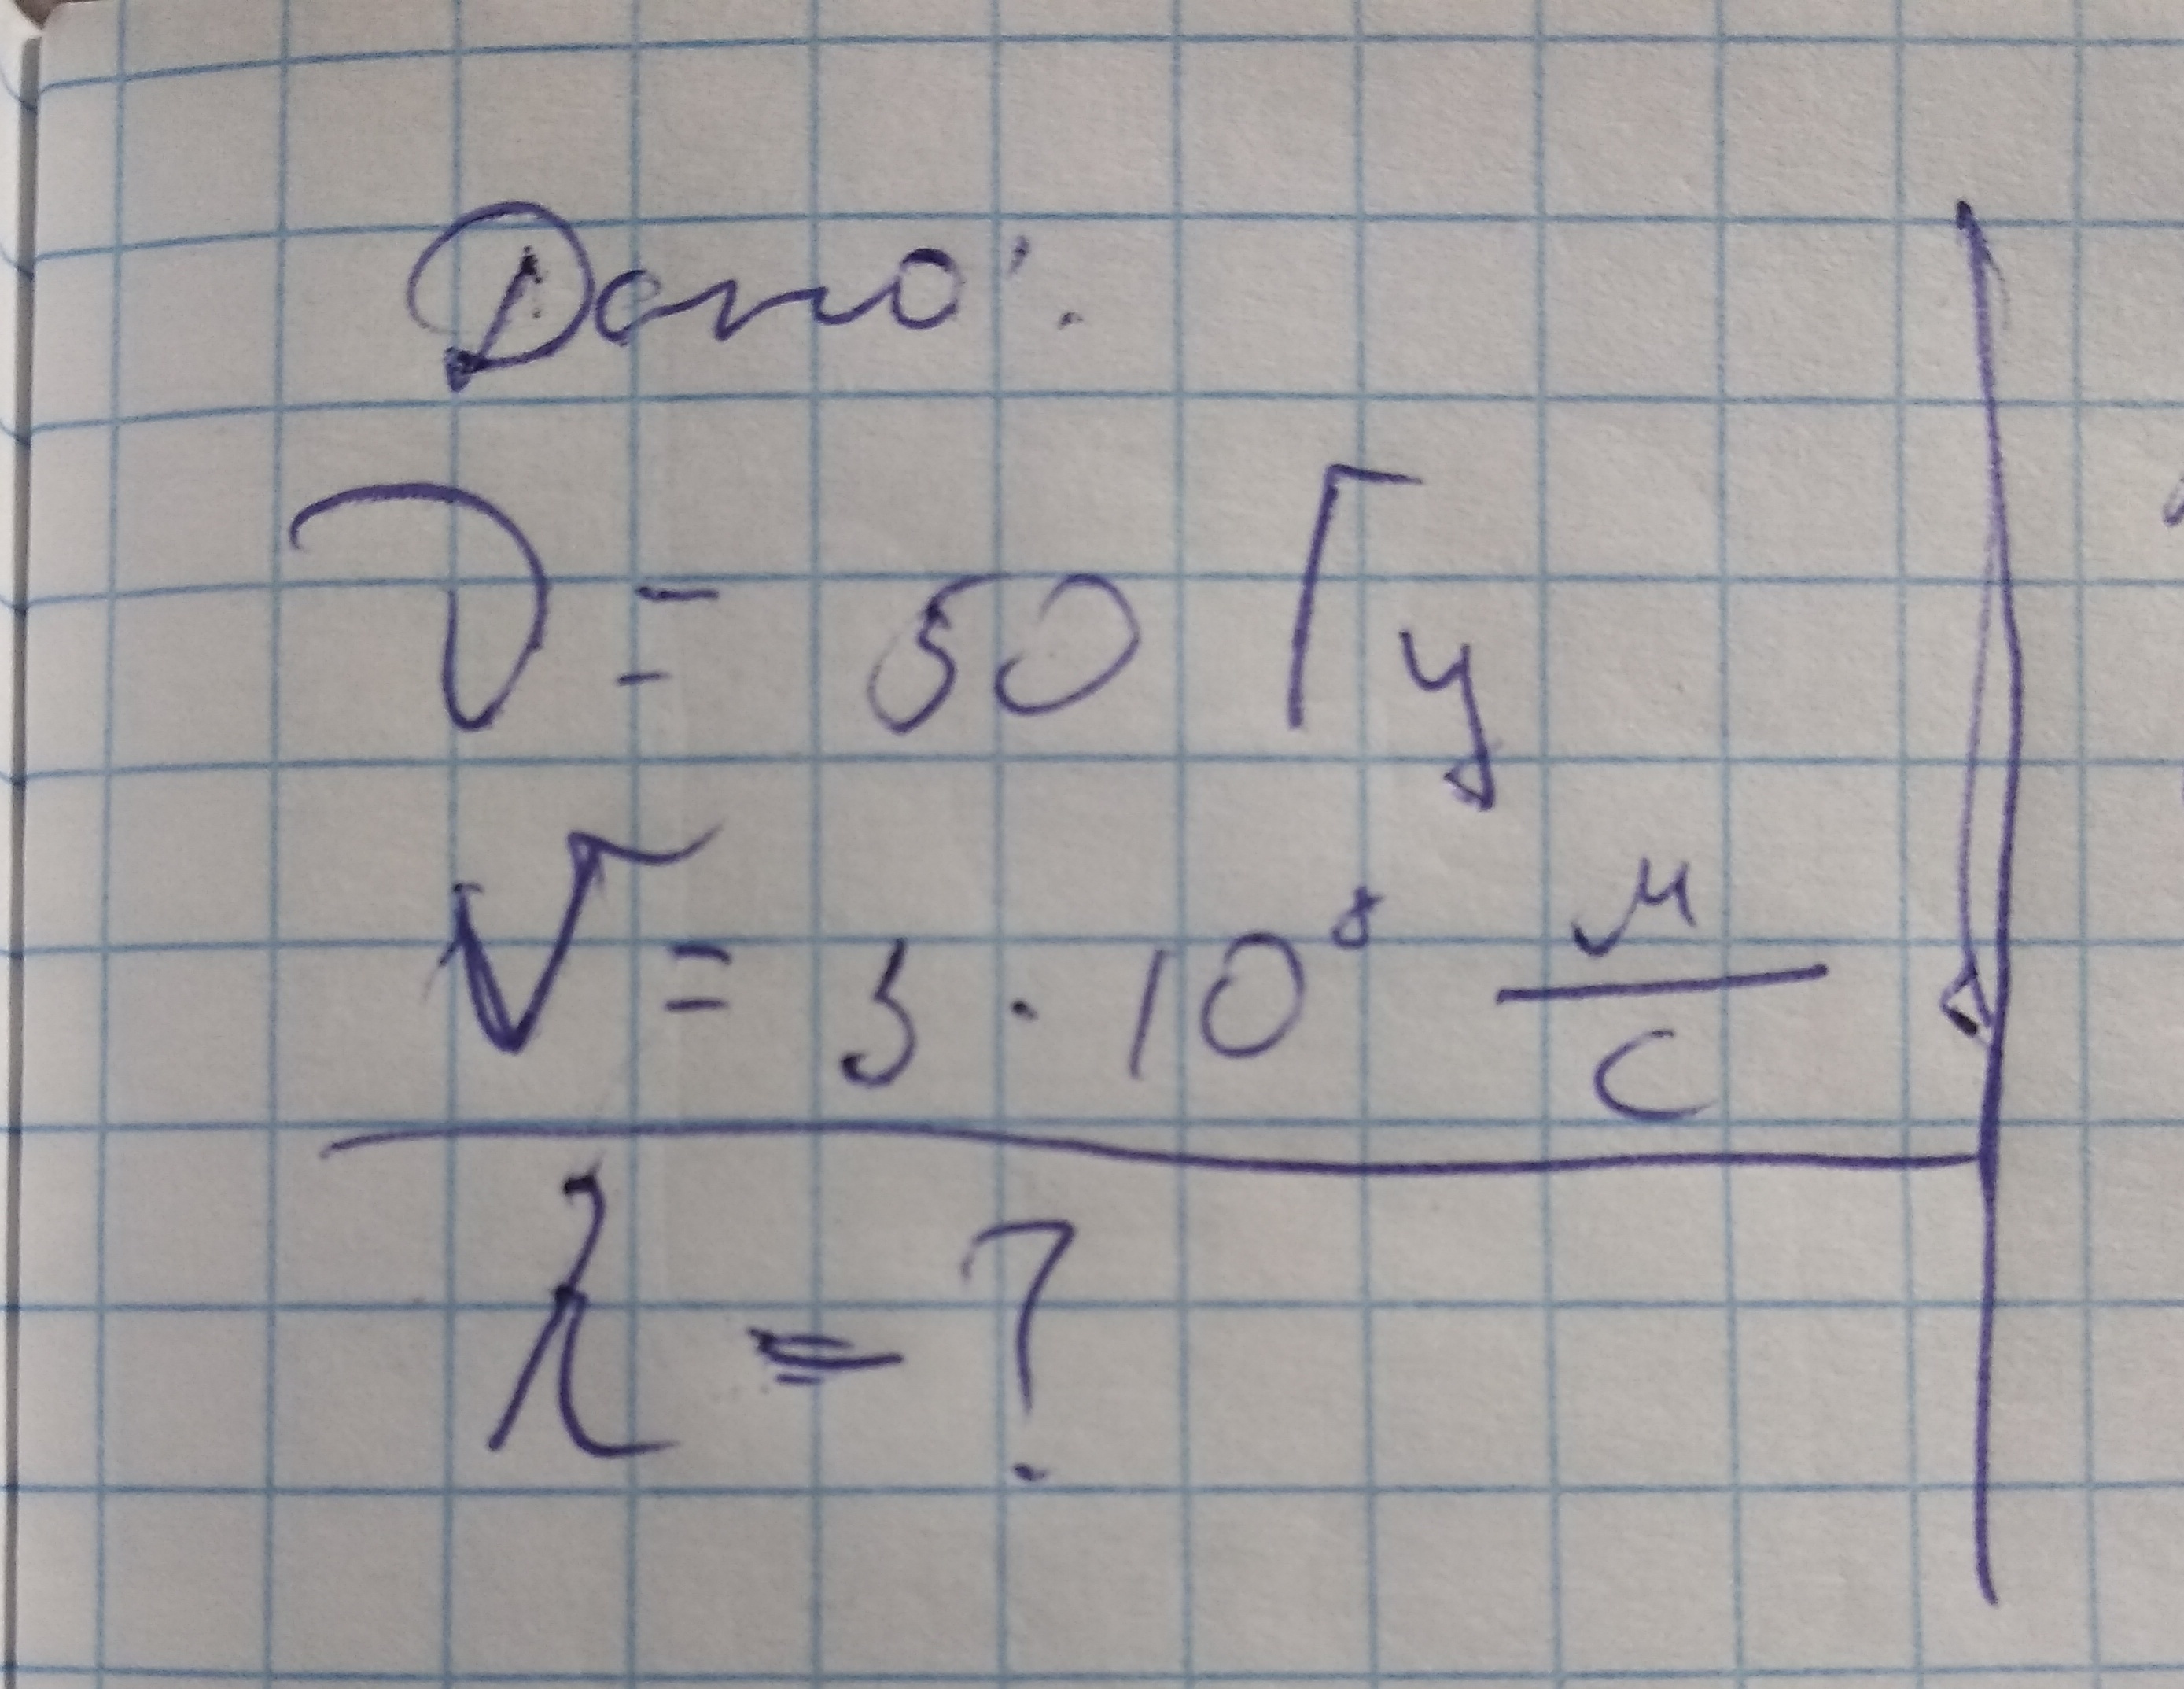 Дано:
ν = 50 Гц
V = 3 · 10⁸ м/с
λ = ?